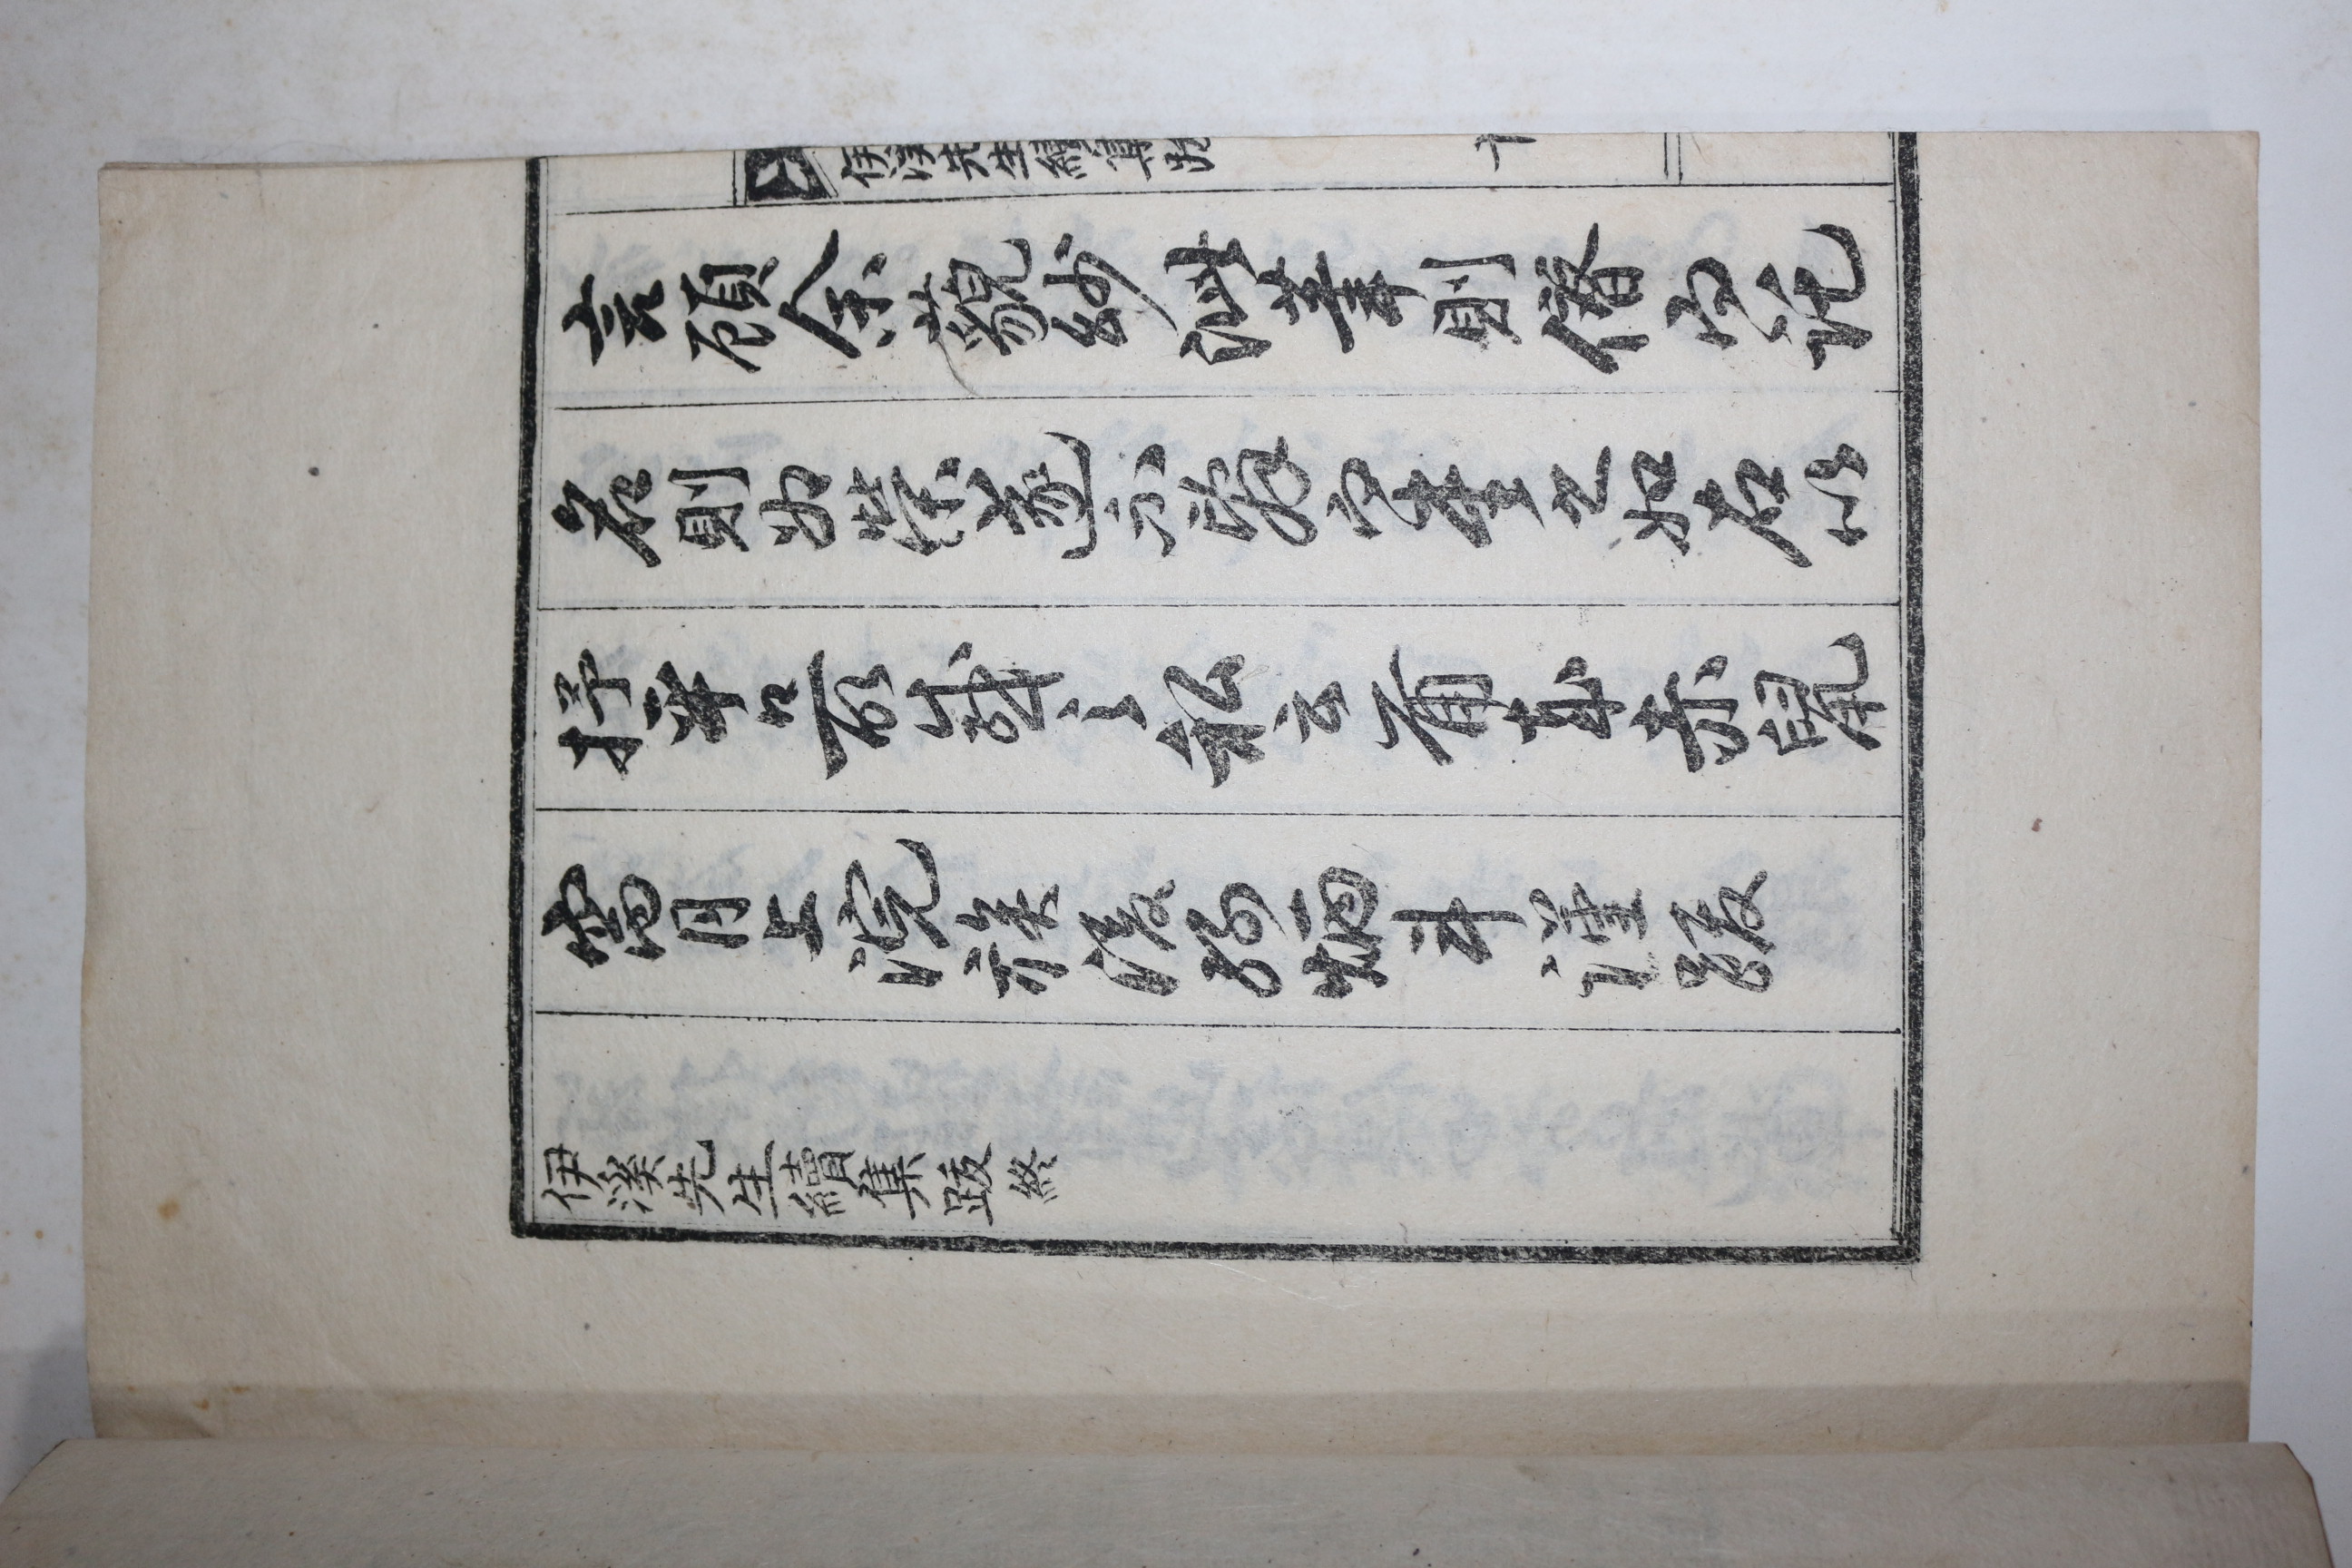 伊溪先生續集跋 十
言顧余藐紗泚筆則僭而託
名則如榮遂不辭而書之如右以
抒平日所感之私云爾歲赤鼠
寎月上浣族後孫炳斗謹跋
伊溪先生續集跋終